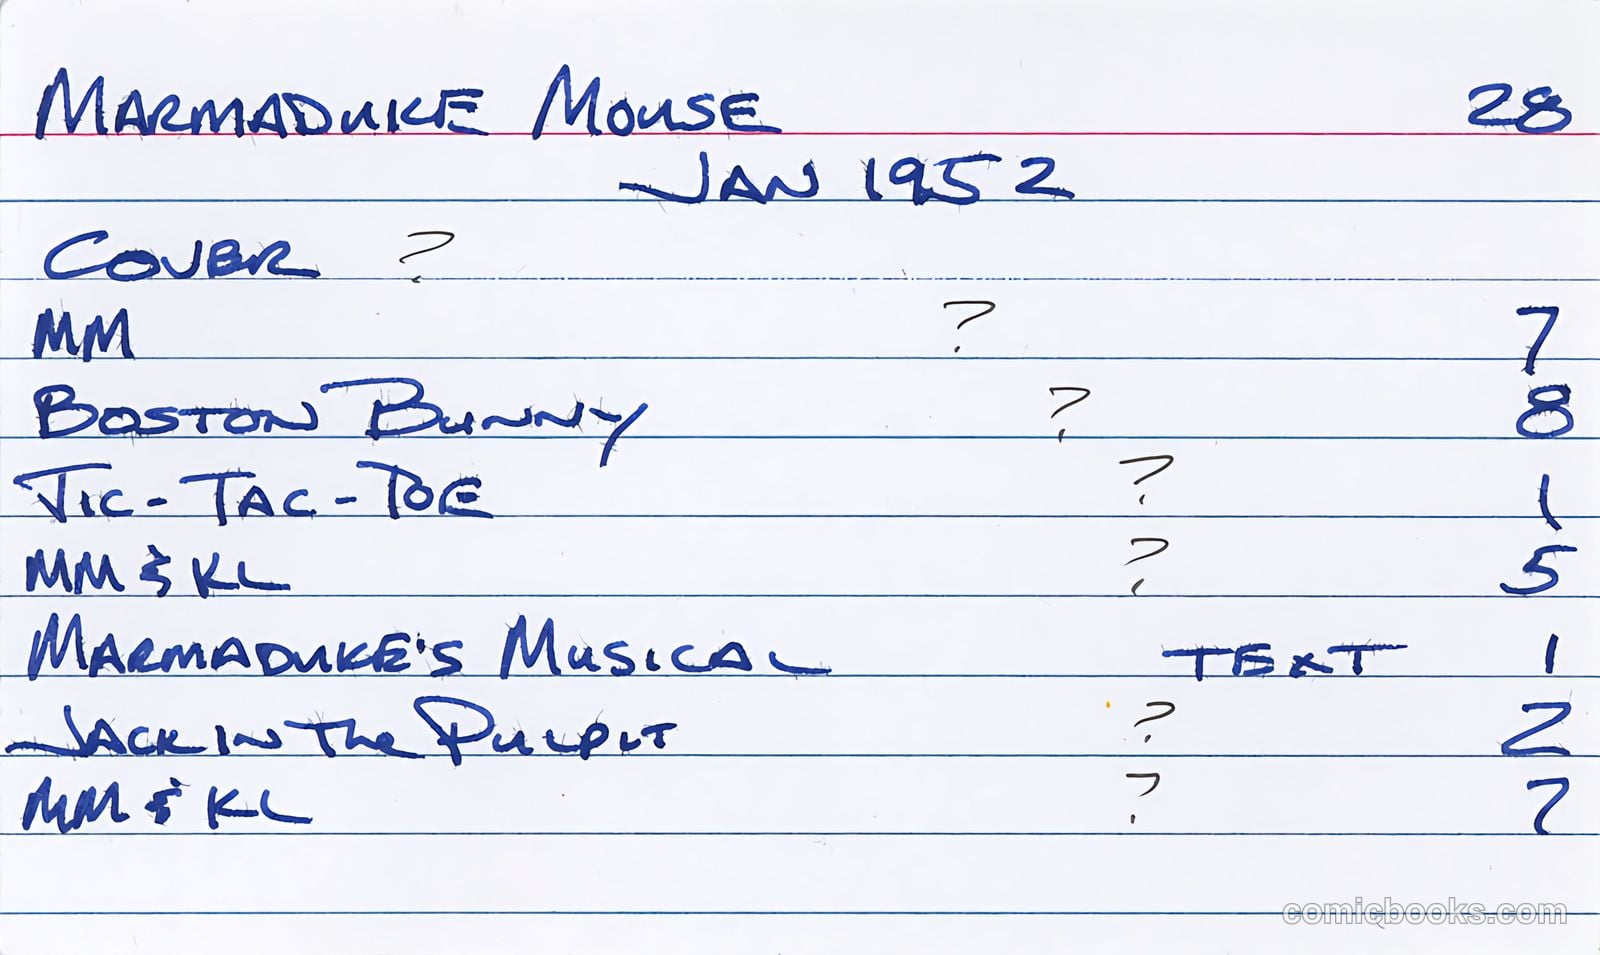 MARMADUKE MOUSE 28
JAN 1952
COVER ?
MM ? 7
BOSTON BUNNY ? 8
TIC-TAC-TOE ? 1
MM & KL ? 5
MARMADUKE'S MUSICAL TEXT 1
JACK IN THE PULPIT ? 2
MM & KL ? 7
comicbooks.com